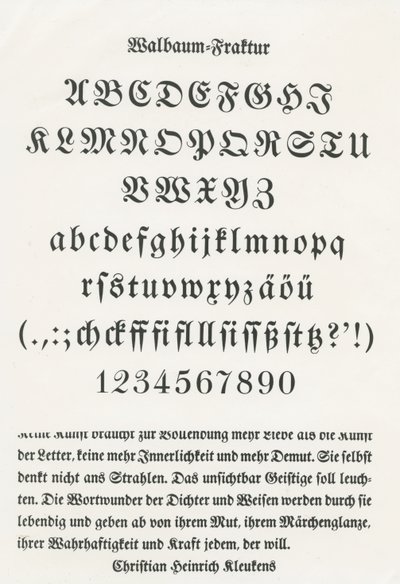 Walbaum-Fraktur
ABCDEFGHJ
KLMNOPQRSTU
VWXYZ
abcdefghijklmnopq
rſstuvwxyzäöü
(.,:;chckfffiflllſiſſßſttz?’!)
1234567890
Keine Kunſt braucht zur Vollendung mehr Liebe als die Kunſt
der Letter, keine mehr Innerlichkeit und mehr Demut. Sie ſelbſt
denkt nicht ans Strahlen. Das unſichtbar Geiſtige ſoll leuch-
ten. Die Wortwunder der Dichter und Weiſen werden durch ſie
lebendig und geben ab von ihrem Mut, ihrem Märchenglanze,
ihrer Wahrhaftigkeit und Kraft jedem, der will.
Chriſtian Heinrich Kleukens